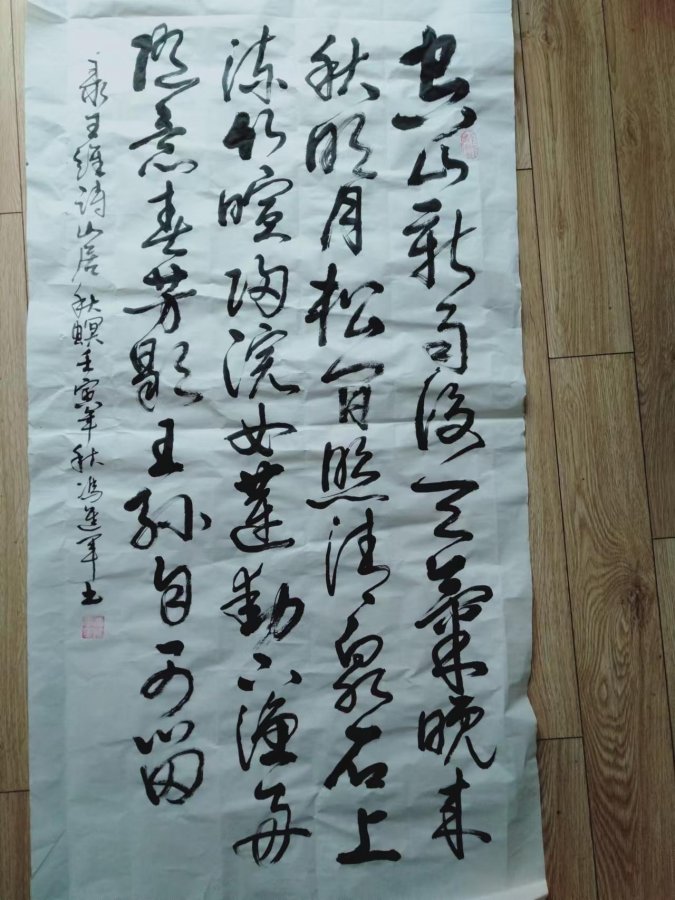 空山新雨後天氣晚来
秋明月松间照清泉石上
流竹喧归浣女莲動下渔舟
随意春芳歇王孙自可留
录王维诗山居秋暝壬寅年秋冯進军书